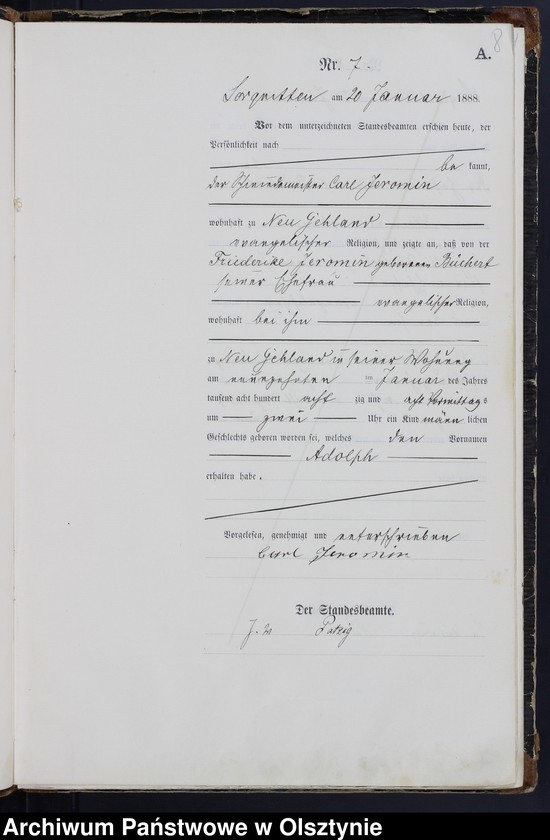 8
A.
Nr. 7.
Sorquitten am 20 Januar 1888.
Vor dem unterzeichneten Standesbeamten erschien heute, der
Persönlichkeit nach
be kannt,
der Schmiedemeister Carl Jeromin
wohnhaft zu Neu Gehland
evangelischer Religion, und zeigte an, daß von der
Friederike Jeromin geborenen Büchert
seiner Ehefrau
evangelischer Religion,
wohnhaft bei ihm
zu Neu Gehland in seiner Wohnung
am neunzehnten im Januar des Jahres
tausend acht hundert acht zig und acht Vormittags
um zwei Uhr ein Kind männ lichen
Geschlechts geboren worden sei, welches den Vornamen
Adolph
erhalten habe.
Vorgelesen, genehmigt und unterschrieben
Carl Jeromin
Der Standesbeamte.
Patzig
Archiwum Państwowe w Olsztynie